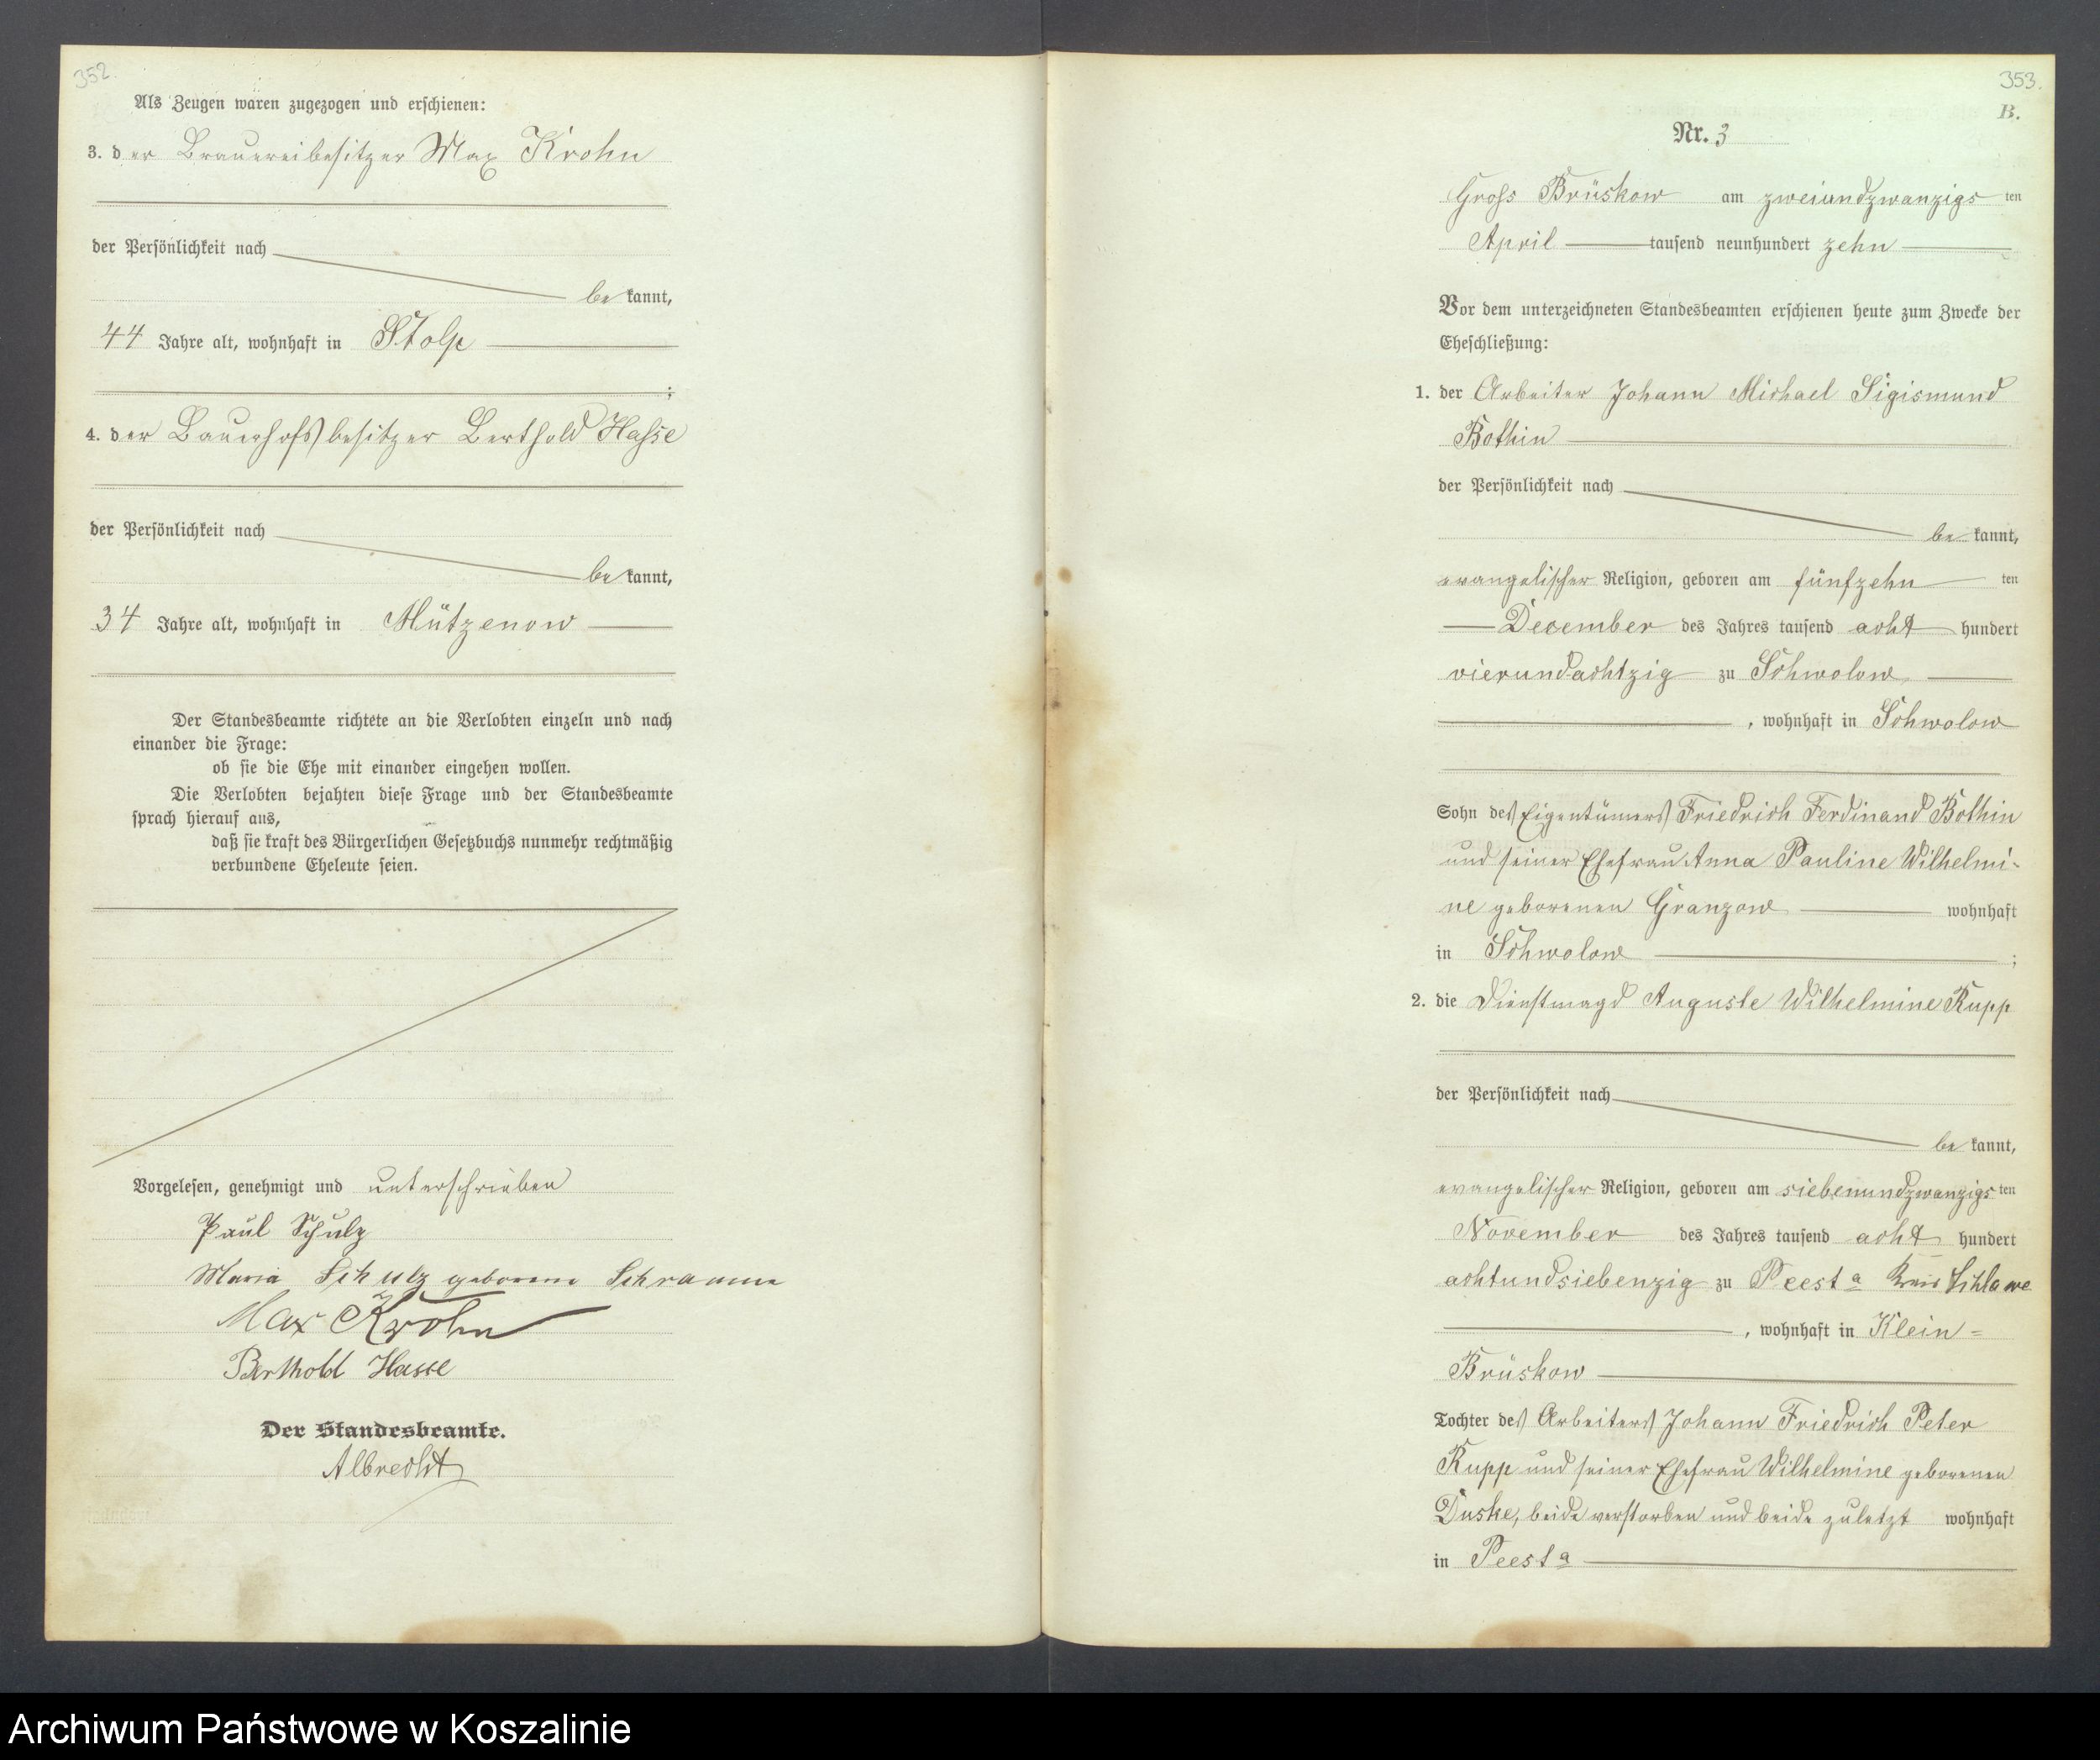 352.
Als Zeugen waren zugezogen und erschienen:
3. der Brauereibesitzer Max Krohn
der Persönlichkeit nach
be kannt,
44 Jahre alt, wohnhaft in Stolp
;
4. der Bauerhofsbesitzer Berthold Hasse
der Persönlichkeit nach
be kannt,
34 Jahre alt, wohnhaft in Mützenow
Der Standesbeamte richtete an die Verlobten einzeln und nach
einander die Frage:
ob sie die Ehe mit einander eingehen wollen.
Die Verlobten bejahten diese Frage und der Standesbeamte
sprach hierauf aus,
daß sie kraft des Bürgerlichen Gesetzbuchs nunmehr rechtmäßig
verbundene Eheleute seien.
Vorgelesen, genehmigt und unterschrieben
Paul Schulz
Maria Schulz geborene Schramm
Max Krohn
Berthold Hasse
Der Standesbeamte.
Albrecht
353.
B.
Nr. 3
Gross Brüskow am zweiundzwanzigs ten
April tausend neunhundert zehn
Vor dem unterzeichneten Standesbeamten erschienen heute zum Zwecke der
Eheschließung:
1. der Arbeiter Johann Michael Sigismund
Bothin
der Persönlichkeit nach
be kannt,
evangelischer Religion, geboren am fünfzehn ten
December des Jahres tausend acht hundert
vierundachtzig zu Schwolow
, wohnhaft in Schwolow
Sohn des Eigentümers Friedrich Ferdinand Bothin
und seiner Ehefrau Anna Pauline Wilhelmi-
ne geborenen Granzow wohnhaft
in Schwolow ;
2. die Dienstmagd Auguste Wilhelmine Rupp
der Persönlichkeit nach
be kannt,
evangelischer Religion, geboren am siebenundzwanzigs ten
November des Jahres tausend acht hundert
achtundsiebenzig zu Peest a Kreis Schlawe
, wohnhaft in Klein=
Brüskow
Tochter des Arbeiters Johann Friedrich Peter
Rupp und seiner Ehefrau Wilhelmine geborenen
Duske, beide verstorben und beide zuletzt wohnhaft
in Peest a
Archiwum Państwowe w Koszalinie